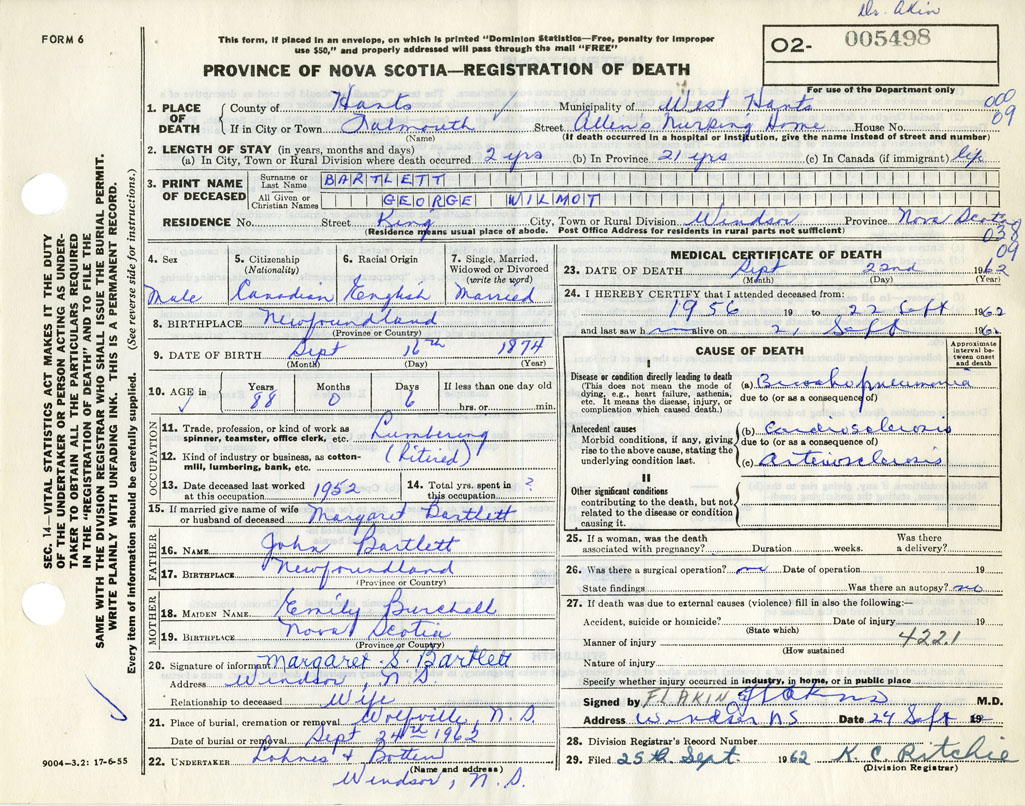 Dr. Akin
FORM 6
This form, if placed in an envelope, on which is printed "Dominion Statistics—Free, penalty for improper
use $50," and properly addressed will pass through the mail "FREE"
O2- 005498
PROVINCE OF NOVA SCOTIA—REGISTRATION OF DEATH
For use of the Department only
000
09
1. PLACE OF DEATH
County of Hants Municipality of West Hants
If in City or Town Falmouth Street Allen's Nursing Home House No.
(Name) (If death occurred in a hospital or institution, give the name instead of street and number)
2. LENGTH OF STAY (in years, months and days)
(a) In City, Town or Rural Division where death occurred 2 yrs (b) In Province 21 yrs (c) In Canada (if immigrant) life
3. PRINT NAME OF DECEASED
Surname or Last Name BARTLETT
All Given or Christian Names GEORGE WILMOT
RESIDENCE No. Street King City, Town or Rural Division Windsor Province Nova Scotia
(Residence means usual place of abode. Post Office Address for residents in rural parts not sufficient)
038
09
4. Sex
Male
5. Citizenship
(Nationality)
Canadian
6. Racial Origin
English
7. Single, Married,
Widowed or Divorced
(write the word)
Married
8. BIRTHPLACE Newfoundland
(Province or Country)
9. DATE OF BIRTH Sept 16th 1874
(Month) (Day) (Year)
10. AGE in
Years Months Days If less than one day old
88 0 6 hrs. or min.
OCCUPATION
11. Trade, profession, or kind of work as
spinner, teamster, office clerk, etc. Lumbering
12. Kind of industry or business, as cotton-
mill, lumbering, bank, etc. (Retired)
13. Date deceased last worked
at this occupation 1952
14. Total yrs. spent in
this occupation ?
15. If married give name of wife
or husband of deceased Margaret Bartlett
FATHER
16. NAME John Bartlett
17. BIRTHPLACE Newfoundland
(Province or Country)
MOTHER
18. MAIDEN NAME Emily Burchell
19. BIRTHPLACE Nova Scotia
(Province or Country)
20. Signature of informant Margaret S. Bartlett
Address Windsor, N.S.
Relationship to deceased Wife
21. Place of burial, cremation or removal Wolfville, N.S.
Date of burial or removal Sept 24th 1962
22. UNDERTAKER Lohnes &
(Name and address)
Windsor, N.S.
MEDICAL CERTIFICATE OF DEATH
23. DATE OF DEATH Sept 22nd 1962
(Month) (Day) (Year)
24. I HEREBY CERTIFY that I attended deceased from:
1956 19 to 22 Sept 1962
and last saw h alive on 21 Sept 196
CAUSE OF DEATH
Approximate
interval be-
tween onset
and death
I
Disease or condition directly leading to death
(This does not mean the mode of
dying, e.g., heart failure, asthenia,
etc. It means the disease, injury, or
complication which caused death.)
(a) Bronchopneumonia
due to (or as a consequence of)
Antecedent causes
Morbid conditions, if any, giving
rise to the above cause, stating the
underlying condition last.
(b) Cardiosclerosis
due to (or as a consequence of)
(c) Arteriosclerosis
II
Other significant conditions
contributing to the death, but not
related to the disease or condition
causing it.
25. If a woman, was the death
associated with pregnancy? Duration weeks. Was there
a delivery?
26. Was there a surgical operation? no Date of operation 19
State findings Was there an autopsy? no
27. If death was due to external causes (violence) fill in also the following:—
Accident, suicide or homicide? Date of injury 19
(State which)
Manner of injury 4221
(How sustained
Nature of injury
Specify whether injury occurred in industry, in home, or in public place
Signed by F L AKIN M.D.
Address Windsor NS Date 24 Sept 19
28. Division Registrar's Record Number
29. Filed 25th Sept. 1962 K. C. Ritchie
(Division Registrar)
SEC. 14—VITAL STATISTICS ACT MAKES IT THE DUTY
OF THE UNDERTAKER OR PERSON ACTING AS UNDER-
TAKER TO OBTAIN ALL THE PARTICULARS REQUIRED
IN THE "REGISTRATION OF DEATH" AND TO FILE THE
SAME WITH THE DIVISION REGISTRAR WHO SHALL ISSUE THE BURIAL PERMIT.
WRITE PLAINLY WITH UNFADING INK. THIS IS A PERMANENT RECORD.
Every item of information should be carefully supplied. (See reverse side for instructions.)
9004-3.2: 17-6-55